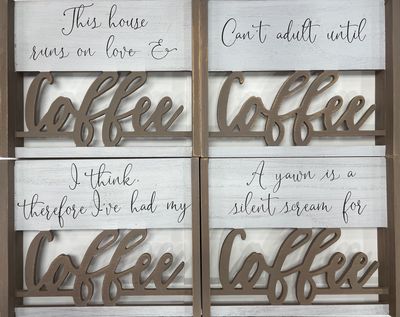 This house
runs on love &
Coffee
Can't adult until
Coffee
I think,
therefore I've had my
Coffee
A yawn is a
silent scream for
Coffee